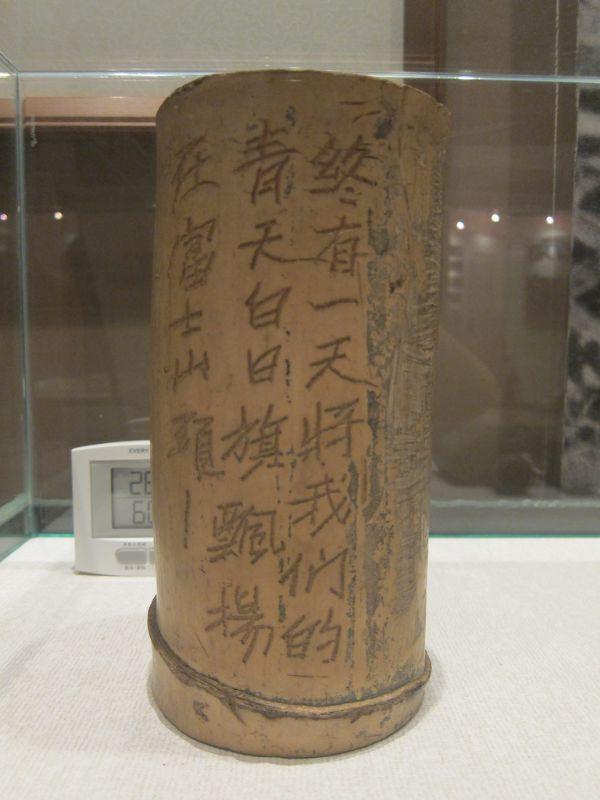 終有一天將我们的
青天白日旗飄揚
在富士山頭—
EVERY
26
60